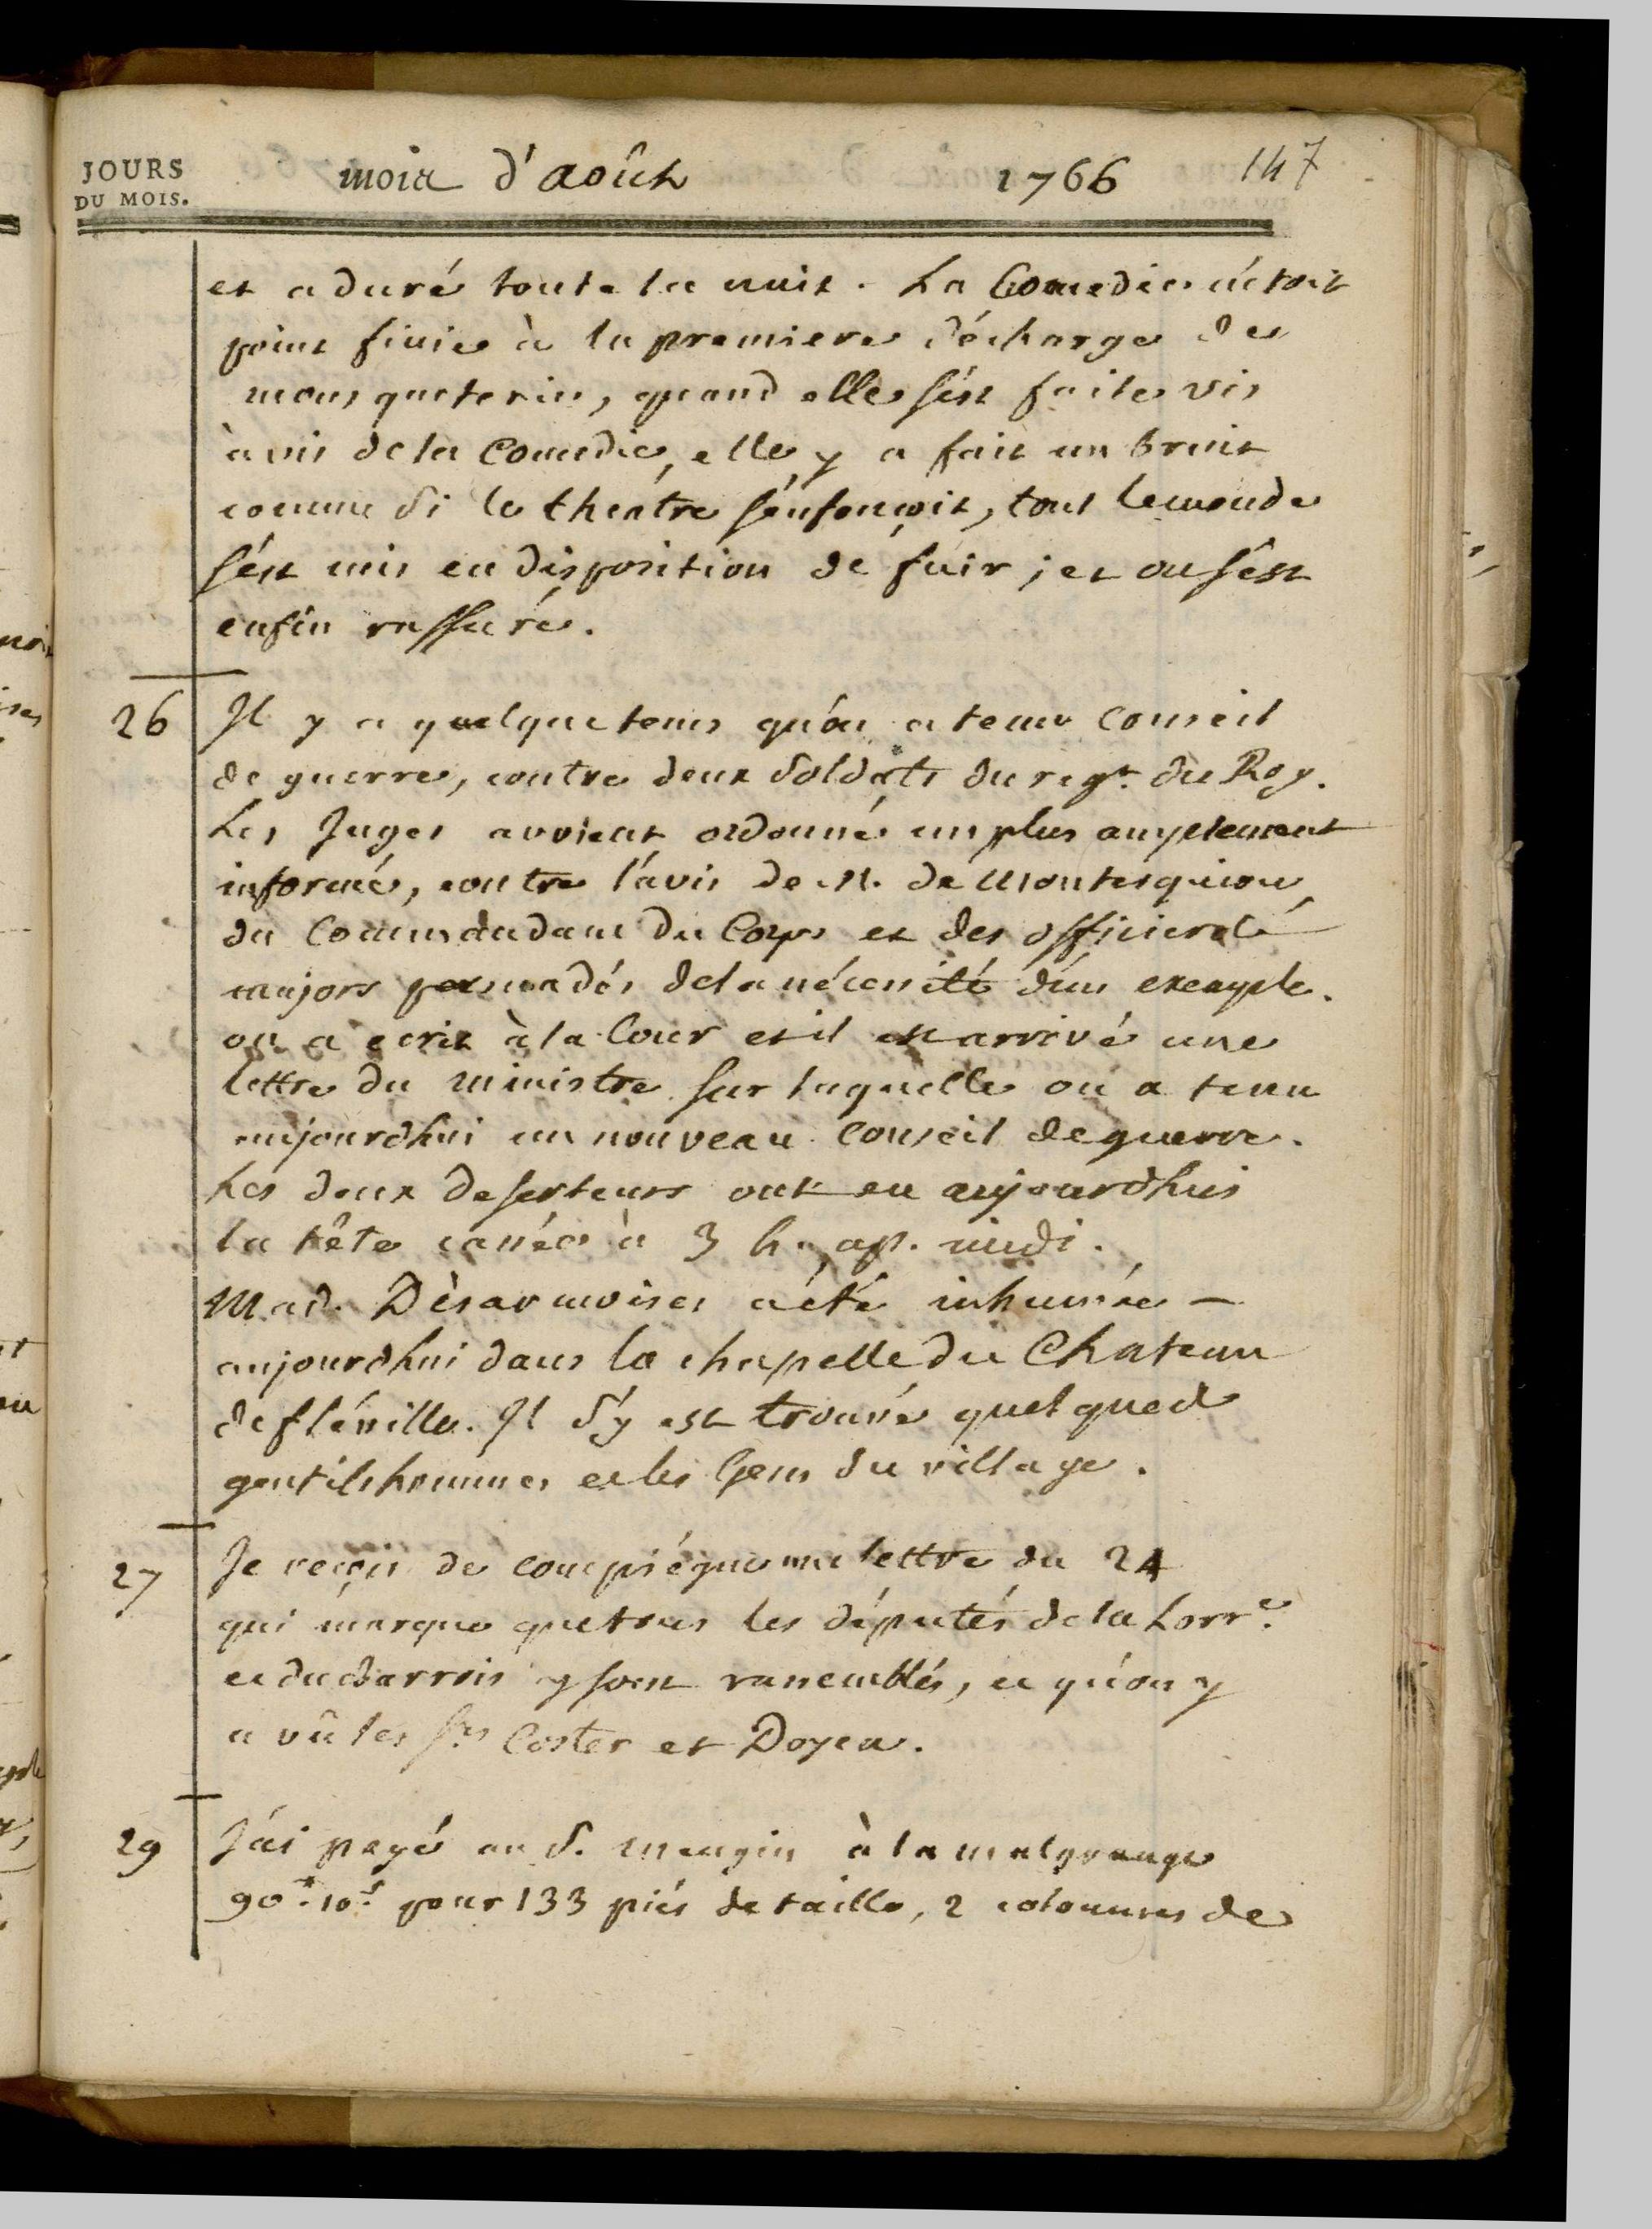 JOURS
DU MOIS.
mois d'août 1766 147
et a duré toute la nuit. La Comedie n'étoit
point finie à la premiere décharge de
mousqueterie, quand elle s'est faite vis
à vis de la Comedie, elle y a fait un bruit
comme si le théatre s'enfonçoit, tout le monde
s'est mis en disposition de fuir ; et on s'est
enfin rassuré.
26 Il y a quelque tems qu'on a tenu conseil
de guerre, contre deux soldats du regt. du Roy.
Les Juges avoient ordonné un plus amplement
informé, contre l'avis de M. de Montesquiou,
du Commandant du Corps et des officiers
majors persuadés de la nécessité d'un exemple.
on a ecrit à la Cour et il est arrivé une
lettre du ministre sur laquelle on a tenu
aujourdhui un nouveau conseil de guerre.
Les deux deserteurs ont eu aujourdhui
la tête cassée à 3 h. ap. midi.
Mad. Désarmoises a été inhumée –
aujourdhui dans la chapelle du Chateau
de fléville. Il s'y est trouvé quelques
gentilshommes et les Gens du village.
27 Je reçois de compiégne une lettre du 24
qui marque que tous les députés de la Lorre.
et du Barrois y sont rassemblés, et qu'on y
a vû les Srs Coster et Doyen.
29 J'ai payé au S. mengin à la malgrange
90#. 10s. pour 133 piés de taille, 2 colonnes de